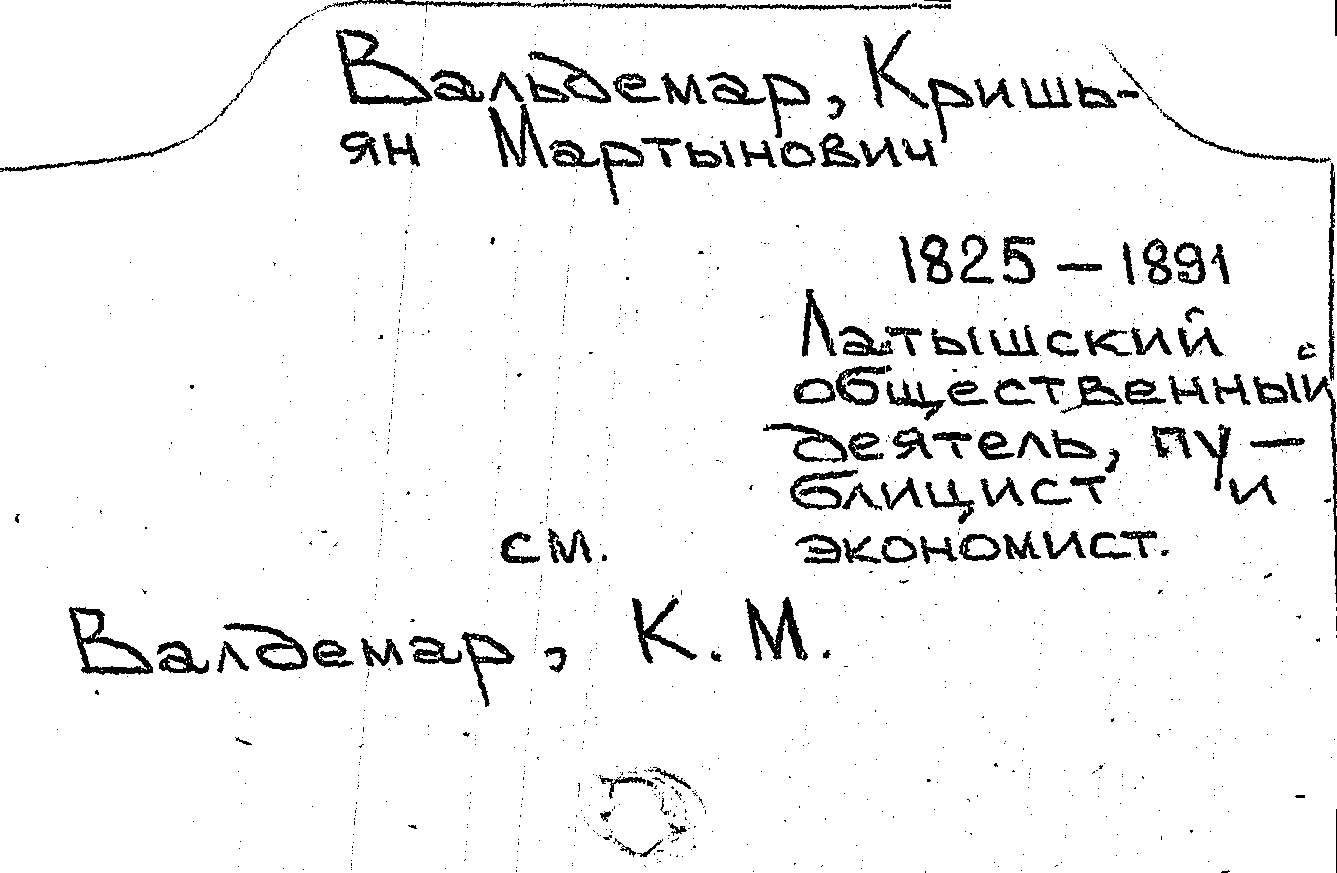 Вальдемар, Кришь-
ян Мартынович
1825 – 1891
Латышский
общественный
деятель, пу-
блицист и
см. экономист.
Валдемар, К. М.